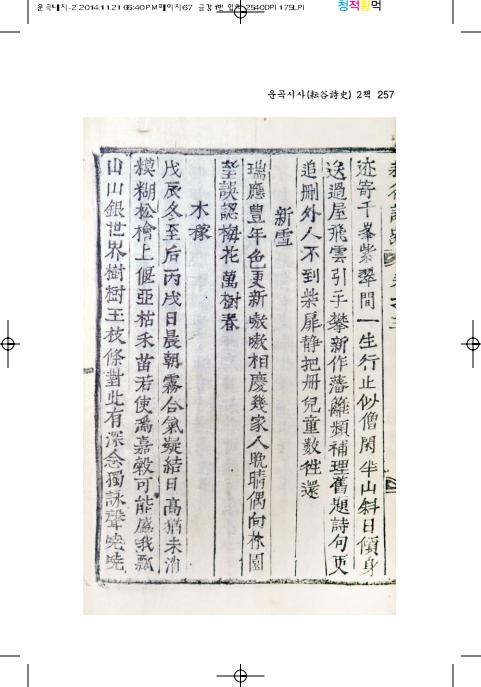 운곡시사(耘谷詩史) 2책 257
迹寄千峯紫翠間一生行止似僧閑半山斜日傾身
送過屋飛雲引手攀新作藩籬頻補理舊題詩句更
追刪外人不到柴扉靜把冊兒童數往還
新雪
瑞應豊年色更新嗷嗷相慶幾家人晩晴偶向林園
望誤認梅花萬樹春
木稼
戊辰冬至后丙戌日晨朝霧合氣凝結日高猶未消
糢糊松檜上偃亞枯禾苗若使爲嘉穀可能盛我瓢
山山銀世界樹樹玉枝條對此有深念獨詠聲嘵嘵